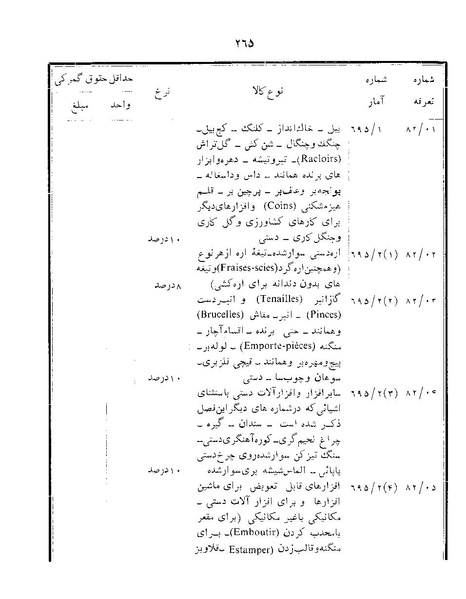 ۲۶۵
شماره تعرفه
شماره آمار
نوع کالا
نرخ
حداقل حقوق گمرکی
واحد مبلغ
۸۲/۰۱ ۶۹۵/۱ بیل ــ خاک‌انداز ــ کلنگ ــ کج‌بیل ــ
چنگک و چنگال ــ شن‌کش ــ گل‌تراش
(Racloirs) ــ تبر و تیشه ــ دهره و ابزار
های برنده همانند ــ داس و داسغاله ــ
یونجه‌بر و علف‌بر ــ پرچین‌بر ــ قلم
هیزم‌شکنی (Coins) و افزارهای دیگر
برای کارهای کشاورزی و گل کاری
و جنگل کاری ــ دستی ۱۰ درصد
۸۲/۰۲ ۶۹۵/۲(۱) اره دستی سوار شده ــ تیغهٔ اره از هر نوع
(و همچنین اره گرد (Fraises-scies) و تیغه
های بدون دندانه برای اره‌کشی) ۸ درصد
۸۲/۰۳ ۶۹۵/۲(۲) گازانبر (Tenailles) و انبردست
(Pinces) ــ انبر ــ مقاش (Brucelles)
و همانند ــ حتی برنده ــ اقسام آچار ــ
منگنه (Emporte-pièces) ــ لوله‌بر ــ
پیچ و مهره‌بر و همانند ــ قیچی فلزبری ــ
سوهان و چوب‌سا ــ دستی ۱۰ درصد
۸۲/۰۴ ۶۹۵/۲(۳) سایر افزار و افزارآلات دستی باستثنای
اشیائی که در شماره های دیگر این فصل
ذکر شده است ــ سندان ــ گیره ــ
چراغ لحیم‌گری ــ کوره آهنگری دستی ــ
سنگ تیزکن سوار شده روی چرخ دستی
یا پائی ــ الماس شیشه بری سوار شده ۱۰ درصد
۸۲/۰۵ ۶۹۵/۲(۴) افزارهای قابل تعویض برای ماشین
افزارها و برای افزار آلات دستی ــ
مکانیکی یا غیر مکانیکی (برای مقعر
یا محدب کردن (Emboutir) ــ برای
منگنه و قالب زدن (Estamper) ــ قلاویز